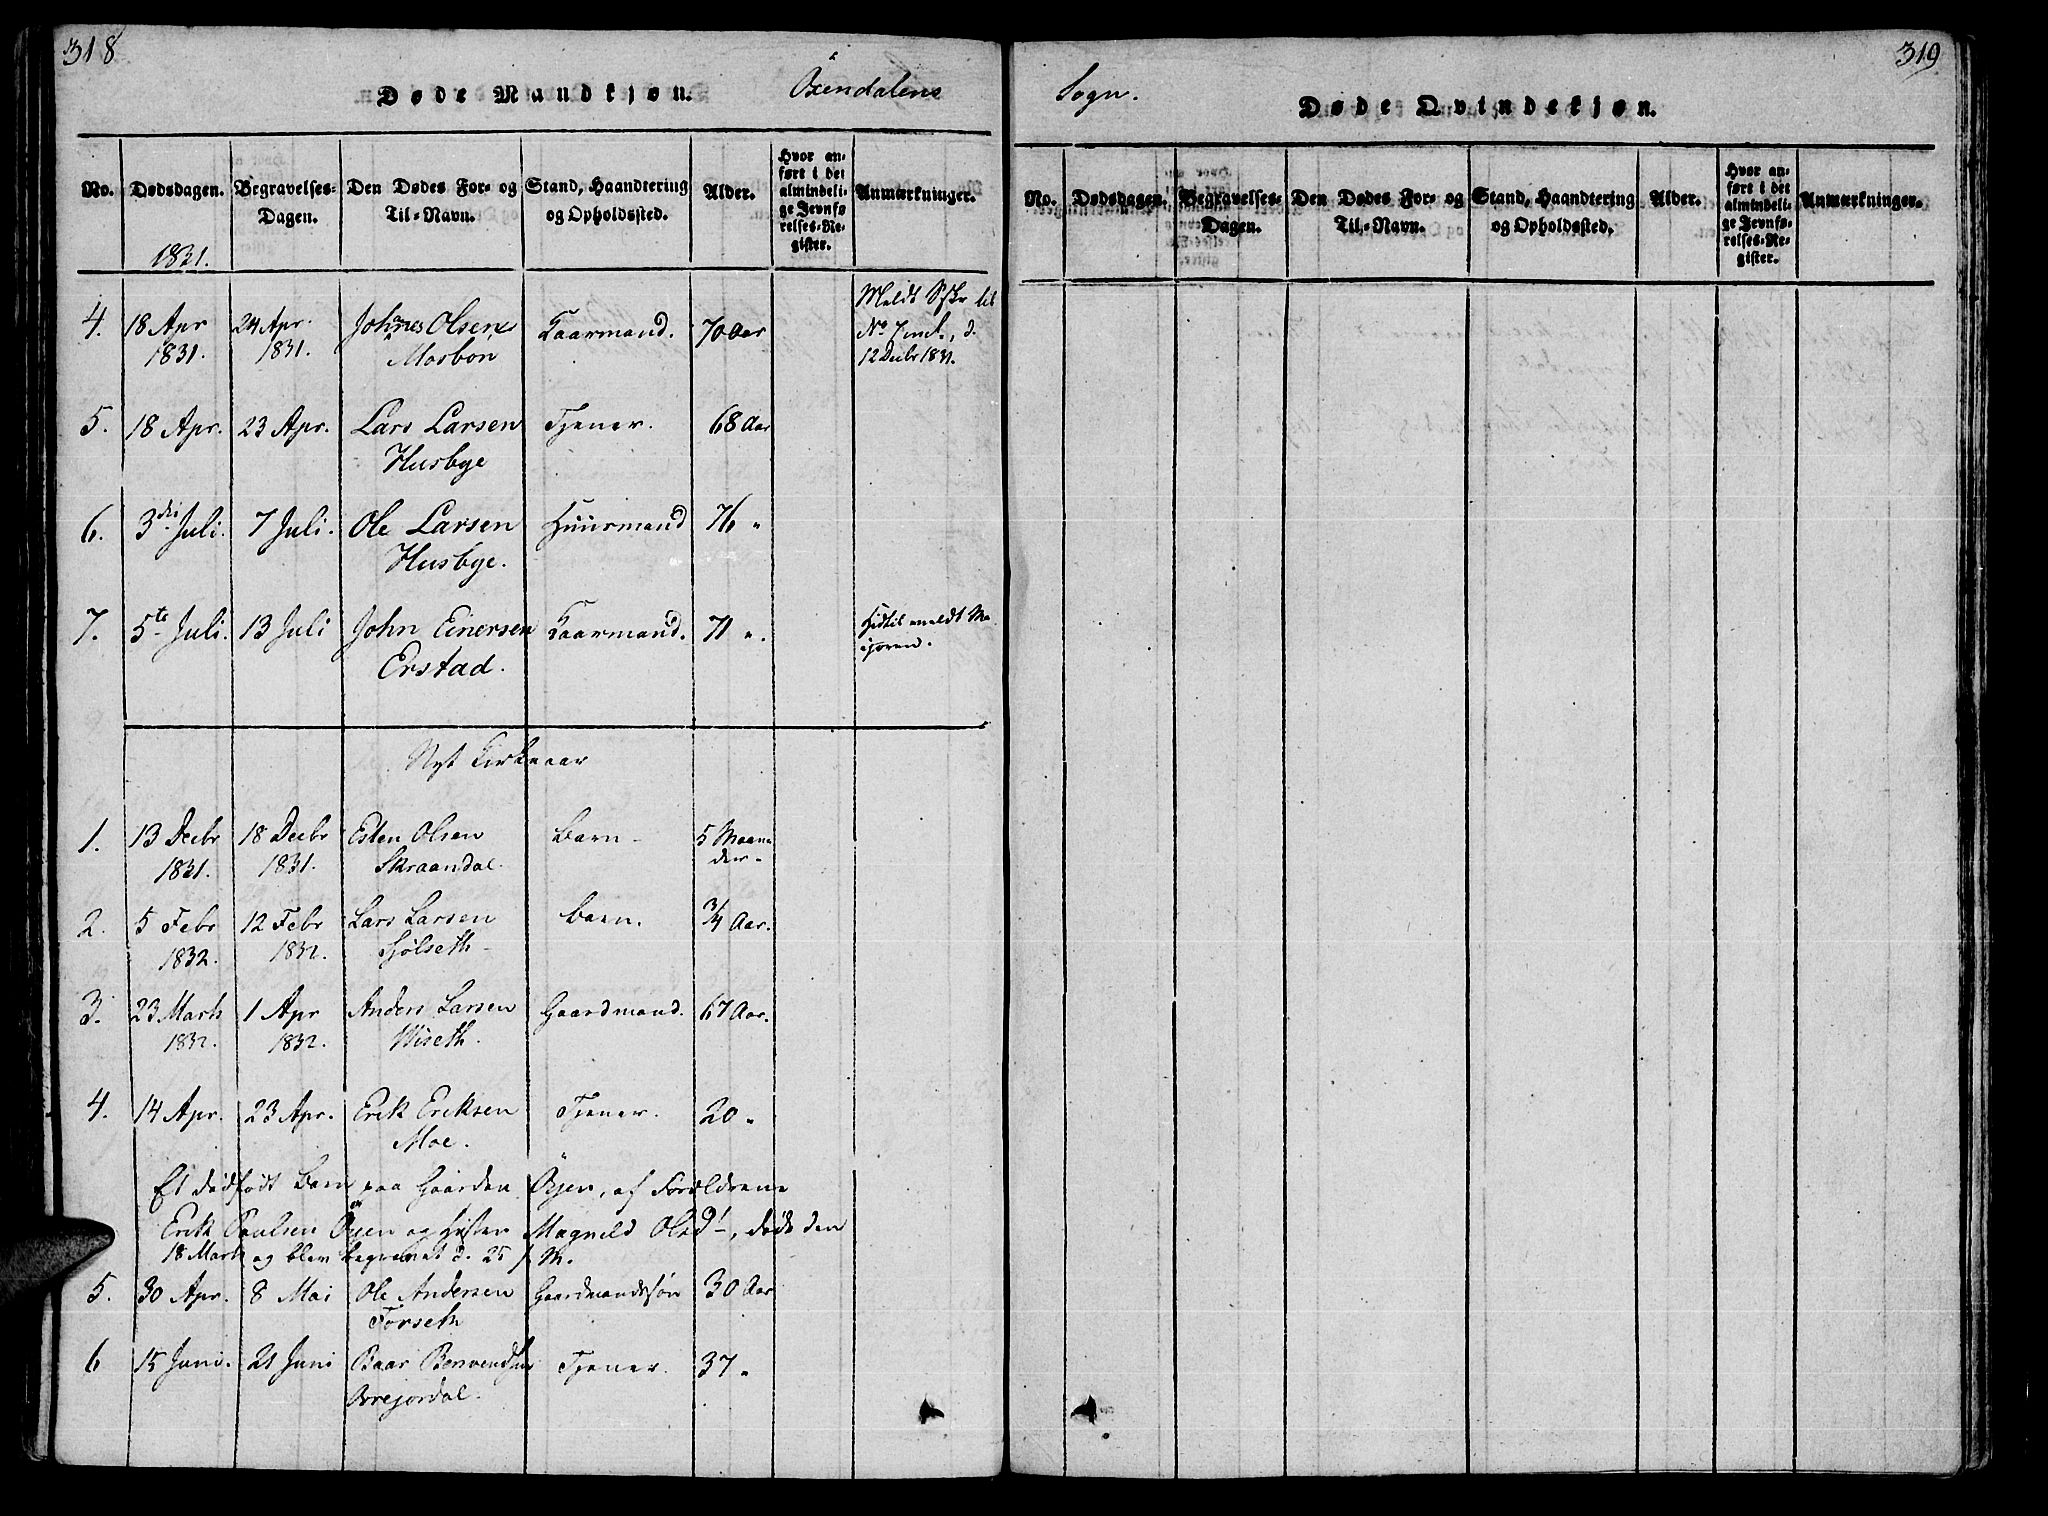 318
Døde Mandkjøn.
Øxendalens
No.
Dødsdagen.
Begravelses-Dagen.
Den Dødes For- og Til-Navn.
Stand, Haandtering og Opholdssted.
Alder.
Hvor anført i det almindelige Jevnførelses-Register.
Anmærkninger.
1831.
4. 18 Apr 1831. 24 Apr. 1831. Johnes Olsen Mosbøn Kaarmand. 70 Aar Meldt til No 7 incl., d. 12 Decbr 1831.
5. 18 Apr. 23 Apr. Lars Larsen Husbye Tjener. 68 Aar
6. 3die Juli. 7 Juli. Ole Larsen Husbye. Huusmand 76 "
7. 5te Juli. 13 Juli John Einersen Erstad. Kaarmand. 71 ". Hidtil meldt Majoren.
Nyt Kirkeaar
1. 13 Decbr 1831. 18 Decbr 1831. Esten Olsen Skraandal. Barn 5 Maaneder
2. 5 Febr 1832. 12 Febr 1832. Lars Larsen Sjølseth Barn. 3/4 Aar.
3. 23 Marts 1832. 1 Apr 1832. Anders Larsen Wiseth. Gaardmand. 67 Aar.
4. 14 Apr. 23 Apr. Erik Eriksen Moe. Tjener. 20 "
Et dødfødt Barn paa Gaarden Øyen, af Forældrene
Erik Paulsen Øyen og Hustru Magnild Olsd, døde den
18 Marts og blev begravet d. 25 s. M.
5. 30 Apr. 8 Mai Ole Andersen Forseth Gaardmandssøn 30 Aar
6 15 Juni. 21 Juni Baar Tjener. 37 "
319
Sogn.
Døde Qvindekjøn.
No.
Dødsdagen.
Begravelses-Dagen.
Den Dødes For- og Til-Navn.
Stand, Haandtering og Opholdssted.
Alder.
Hvor anført i det almindelige Jevnførelses-Register.
Anmærkninger.